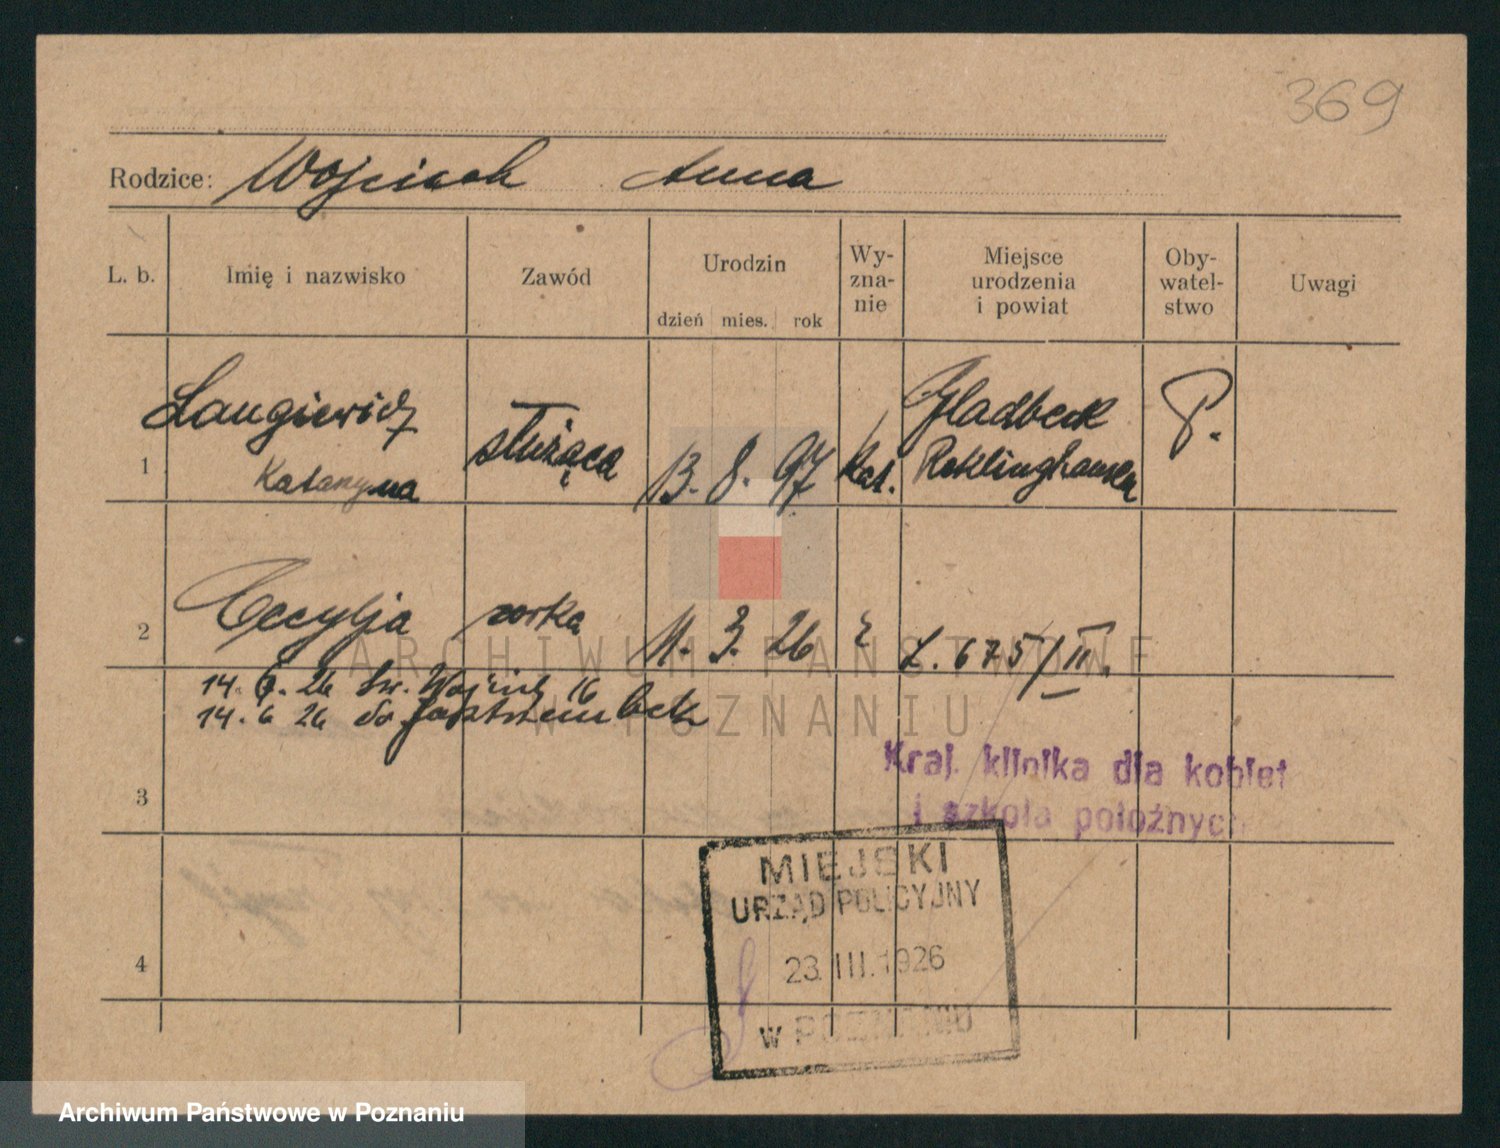 369
Rodzice: Wojciech Anna
L. b.
Imię i nazwisko
Zawód
Urodzin
dzień mies. rok
Wy-
zna-
nie
Miejsce
urodzenia
i powiat
Oby-
watel-
stwo
Uwagi
1
Langiewicz
Katarzyna
służąca
13. 8. 97
kat.
Gladbeck
Reklinghausen
P.
2
Cecylja
corka
11. 3. 26
L. 675/II.
14. 6. 26 Św. Wojciech 16
14. 6 26 do
3
Kraj. klinika dla kobiet
i szkoła położnych
4
MIEJSKI
URZĄD POLICYJNY
23. III. 1926
w POZNANIU
ARCHIWUM PAŃSTWOWE
W POZNANIU
Archiwum Państwowe w Poznaniu